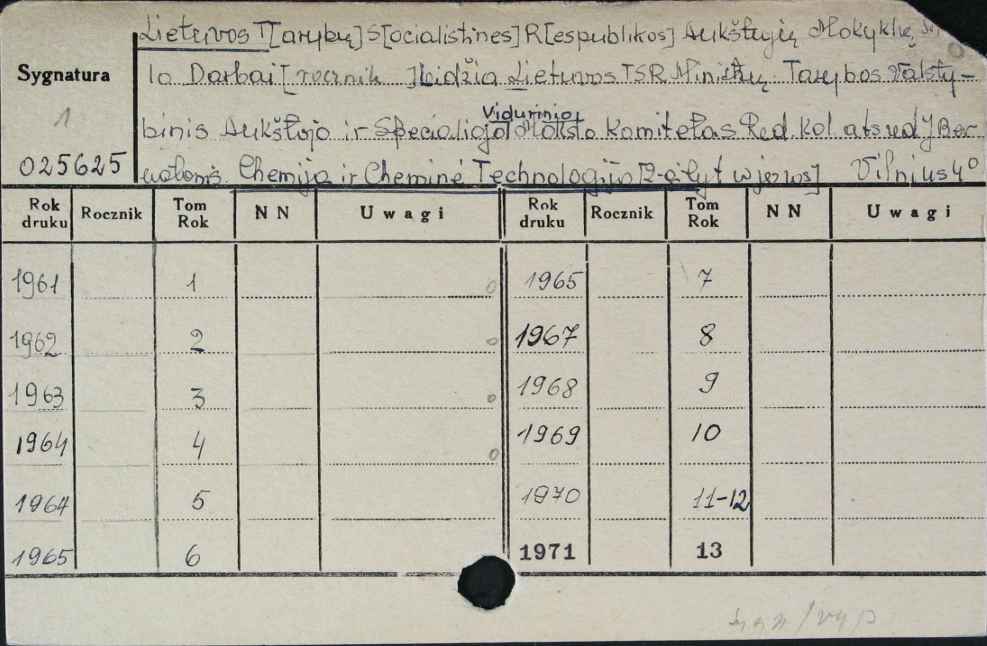 Lietuvos T[arybų] S[ocialistinės] R[espublikos] Aukštųjų Mokyklų
Sygnatura
la Darbai [rocznik] Leidžia Lietuvos TSR Ministrų Tarybos Valsty-
1
Vidurinio
binis Aukštojo ir Specialiojo Mokslo Komitetas Red kol ats red J Ber
025625
Chemija ir Cheminė Technologija Vilnius 4°
Rok druku Rocznik Tom Rok NN Uwagi Rok druku Rocznik Tom Rok NN Uwagi
1961 1 1965 7
1962 2 1967 8
1963 3 1968 9
1964 4 1969 10
1964 5 1970 11-12
1965 6 1971 13